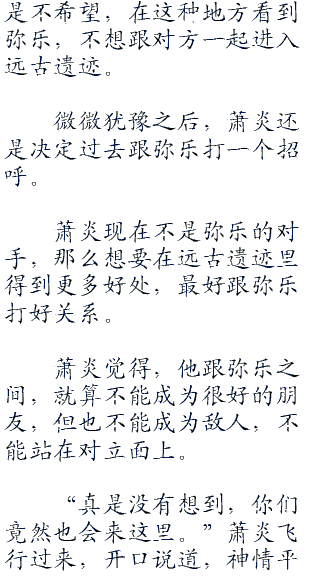 是不希望，在这种地方看到
弥乐，不想跟对方一起进入
远古遗迹。
微微犹豫之后，萧炎还
是决定过去跟弥乐打一个招
呼。
萧炎现在不是弥乐的对
手，那么想要在远古遗迹里
得到更多好处，最好跟弥乐
打好关系。
萧炎觉得，他跟弥乐之
间，就算不能成为很好的朋
友，但也不能成为敌人，不
能站在对立面上。
“真是没有想到，你们
竟然也会来这里。”萧炎飞
行过来，开口说道，神情平